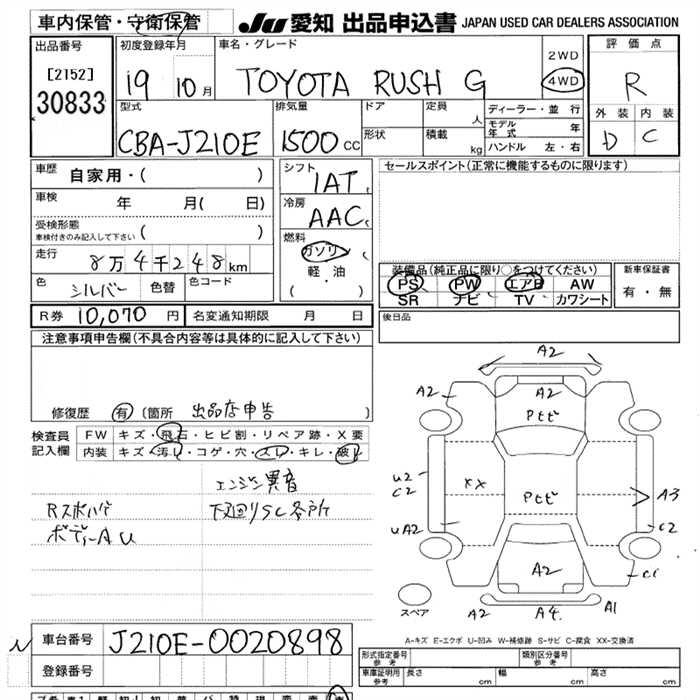 車内保管・守衛保管
JU 愛知 出品申込書 JAPAN USED CAR DEALERS ASSOCIATION
出品番号
[2152]
30833
初度登録年月
19 10月
車名・グレード
TOYOTA RUSH G
2WD
4WD
評価点
R
外装 内装
D C
型式
CBA-J210E
排気量
1500 CC
ドア
形状
定員
人
積載
kg
ディーラー・並行
モデル年式 年
ハンドル 左・右
車歴
自家用・( )
車検
年 月( 日)
受検形態
車検付きのみ記入して下さい ( )
走行
8万4千248km
色
シルバー
色替
色コード
シフト
1AT
冷房
AAC
燃料
ガソリン
軽・油
( ・ )
セールスポイント(正常に機能するものに限ります)
装備品(純正品に限り○をつけてください)
PS PW エアB AW
SR ナビ TV カワシート
新車保証書
有・無
R券 10,070 円
名変通知期限 月 日
後日品
注意事項申告欄(不具合内容等は具体的に記入して下さい)
修復歴 有 (箇所 出品店申告 )
検査員記入欄
FW キズ・飛石・ヒビ割・リペア跡・X要
内装 キズ・汚れ・コゲ・穴・スレ・キレ・破れ
エンジン異音
下廻りSC各所
ボディーAU
A2
A2
A2
Pセビ
U2
C2
XX
A3
Pセビ
UA2
C2
A2
C1
スペア
A2
A4.
A1
A-キズ E-エクボ U-凹み W-補修跡 S-サビ C-腐食 XX-交換済
車台番号
J210E-0020898
登録番号
形式指定番号
参考
類別区分番号
参考
車庫証明用
参考
長さ cm
幅 cm
高さ cm